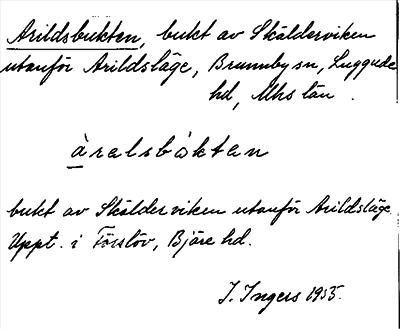 Arildsbukten, bukt av Skälderviken
utanför Arildsläge, Brunnby sn, Luggude
hd, Mhs län.
àrelsbòktan
bukt av Skälderviken utanför Arildsläge.
Uppt. i Förslöv, Bjäre hd.
I. Ingers 1955.